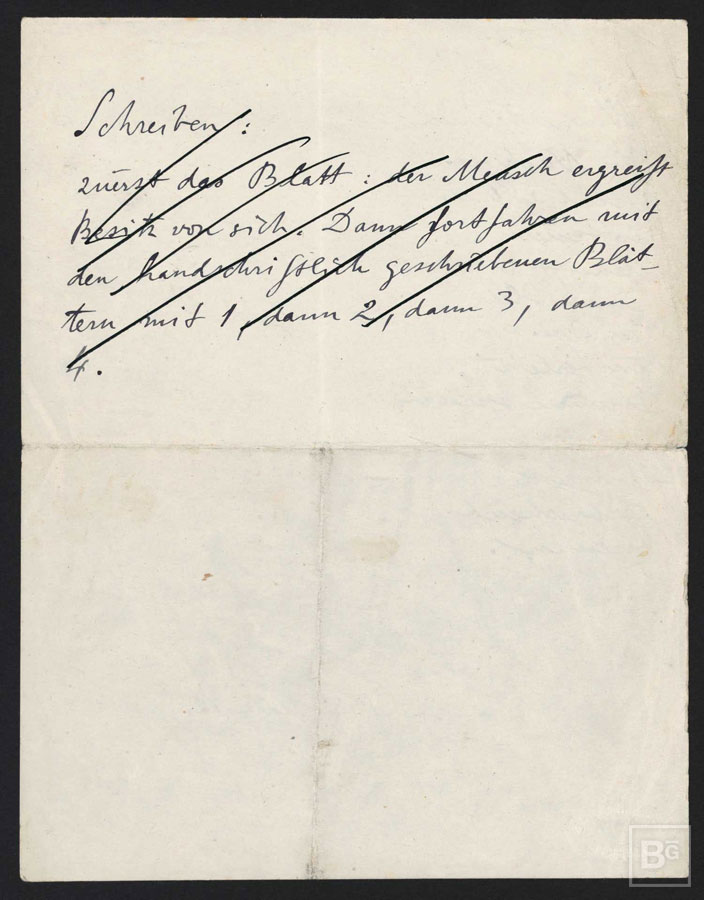 Schreiben:
zuerst das Blatt: der Mensch ergreift
Besitz von sich. Dann fortfahren mit
den handschriftlich geschriebenen Blät-
tern mit 1, dann 2, dann 3, dann
4.
BG